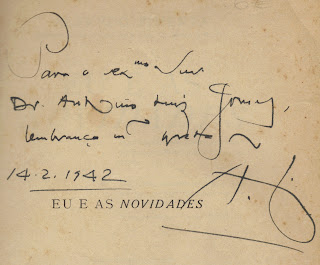 Para o ex.mo Snr.
Dr. António Luiz Gomes,
lembrança m.to grata
14.2.1942
EU E AS NOVIDADES